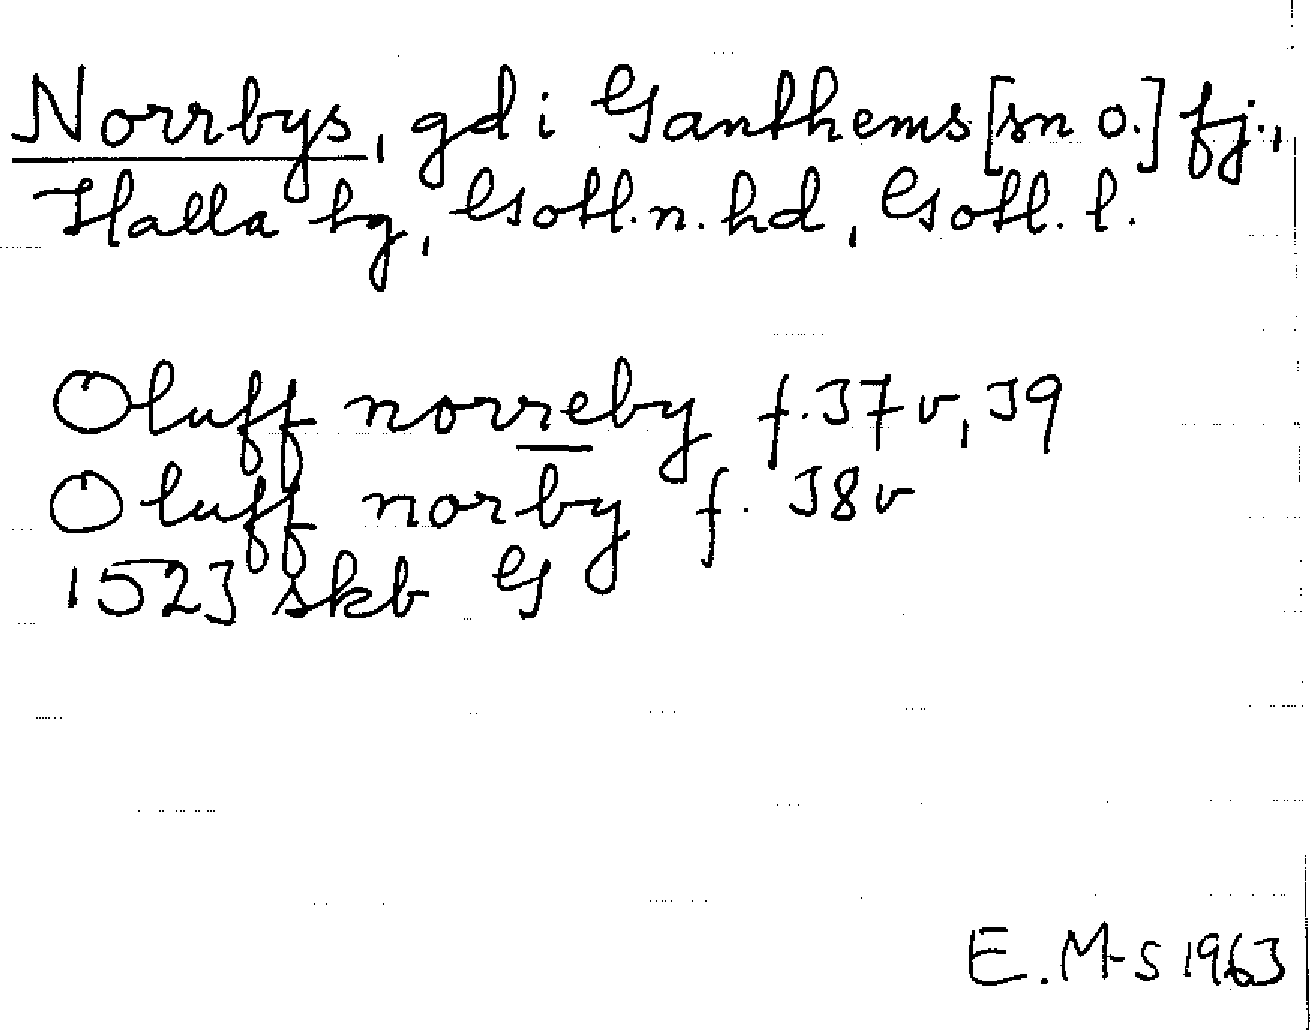 Norrbys, gd i Ganthems [sn o.] fj.,
Halla tg, Gotl. n. hd, Gotl. l.
Oluff norreby f. 37v, 39
Oluff norby f. 38v
1523 skb G
E. M-S 1963